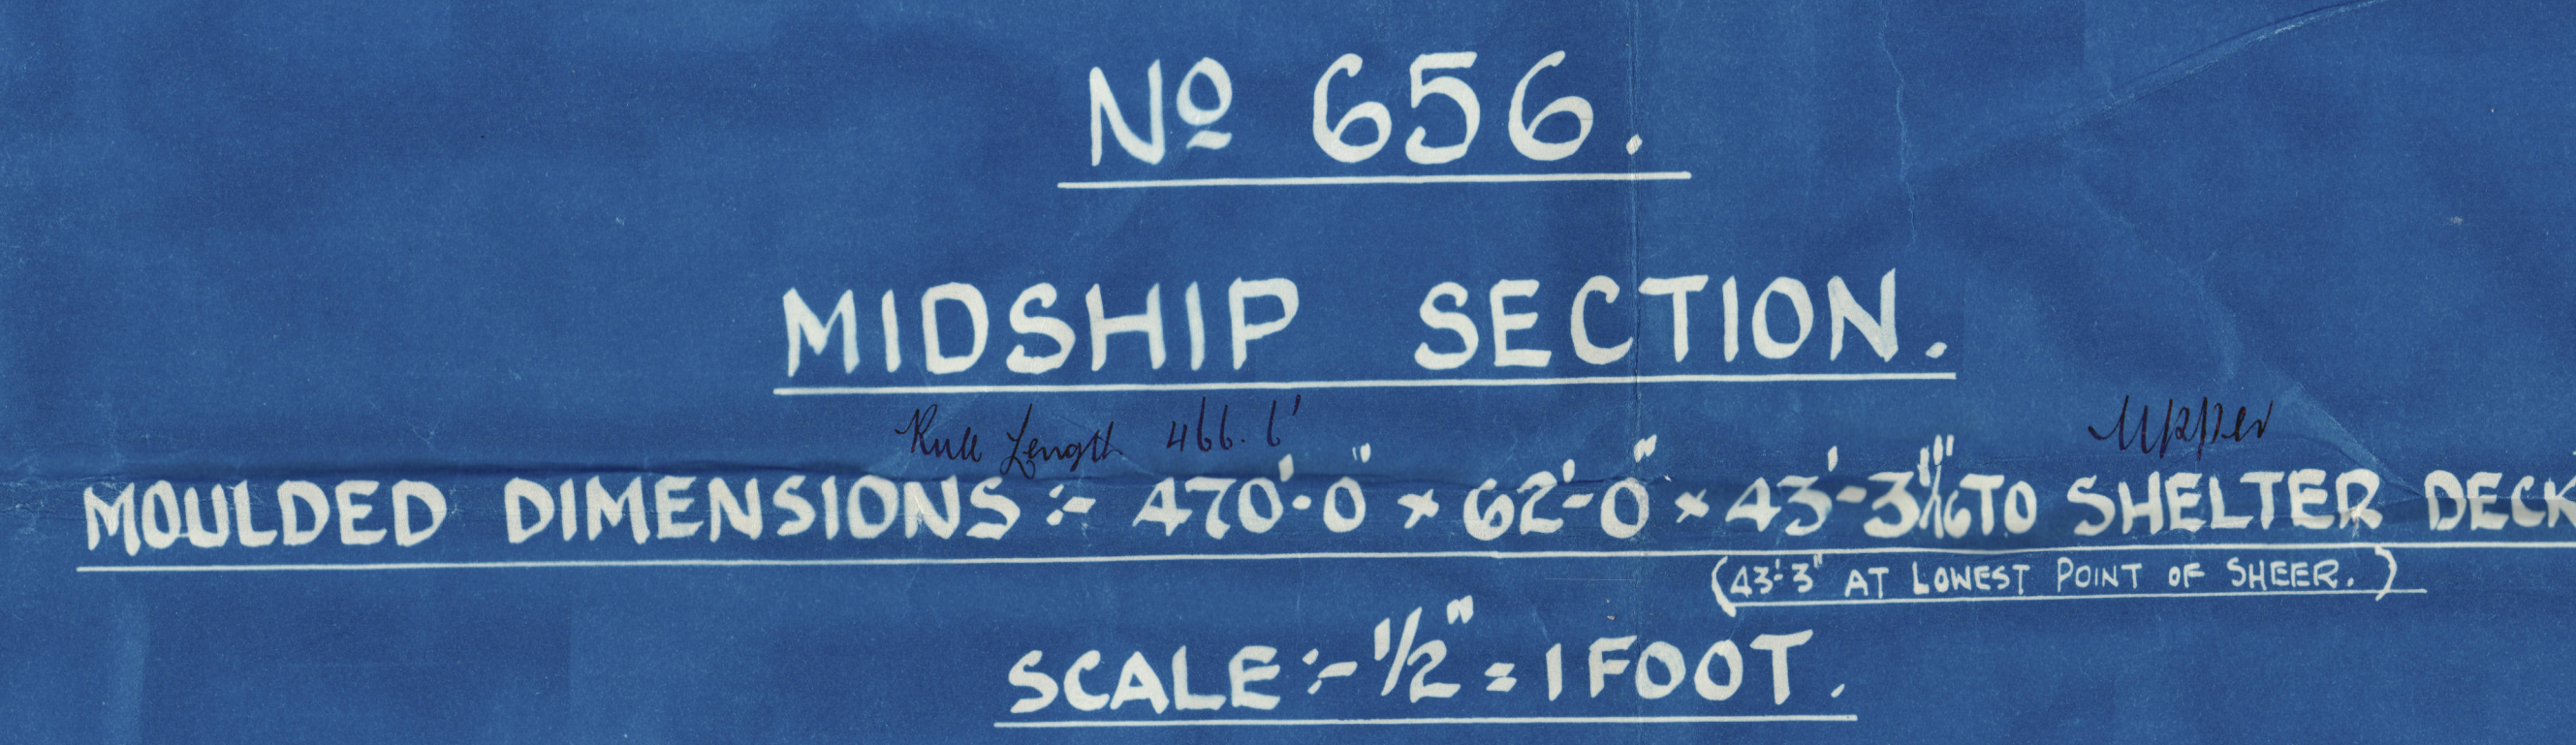 Nº 656.
MIDSHIP SECTION.
Rule Length 466.6' Upper
MOULDED DIMENSIONS :- 470'-0" × 62'-0" × 43'-3 1/16" TO SHELTER DECK
(43'-3" AT LOWEST POINT OF SHEER.)
SCALE :- 1/2" = 1 FOOT.